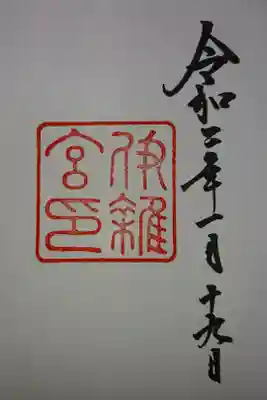 令和二年一月十九日
伊雜
宮印